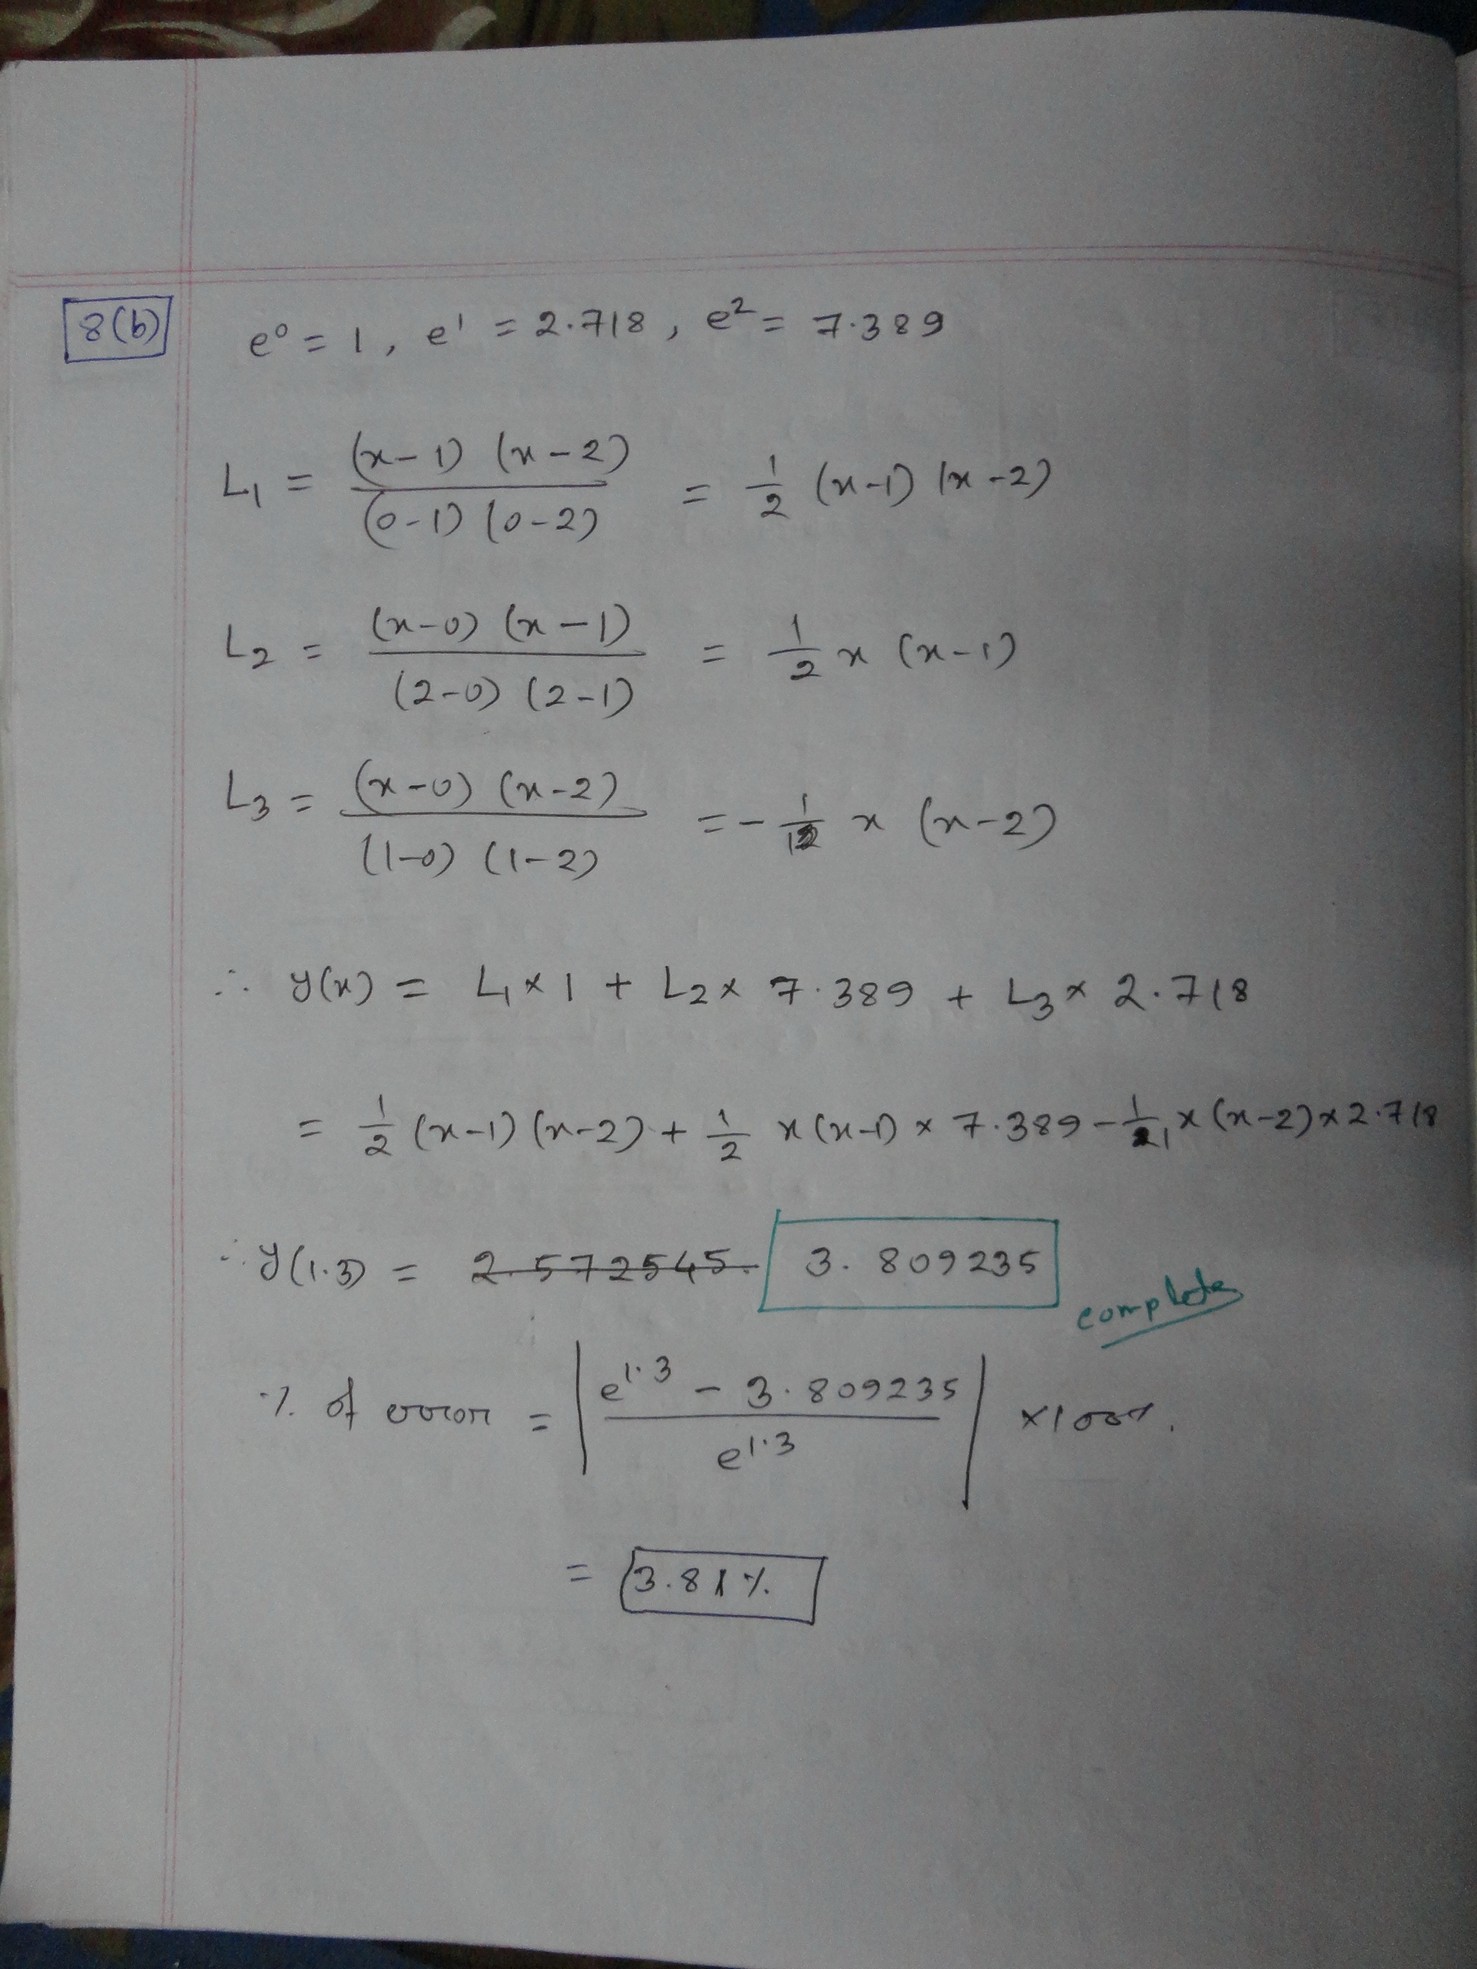 8(b)
e⁰ = 1, e¹ = 2.718, e² = 7.389
L₁ = (x-1) (x-2) / (0-1) (0-2) = 1/2 (x-1) (x-2)
L₂ = (x-0) (x-1) / (2-0) (2-1) = 1/2 x (x-1)
L₃ = (x-0) (x-2) / (1-0) (1-2) = - 1/1 x (x-2)
∴ y(x) = L₁ × 1 + L₂ × 7.389 + L₃ × 2.718
= 1/2 (x-1) (x-2) + 1/2 x (x-1) × 7.389 - 1/1 x (x-2) × 2.718
∴ y(1.3) = 2.572545 3.809235
complete
% of error = | e^1.3 - 3.809235 / e^1.3 | × 100%.
= 3.81%